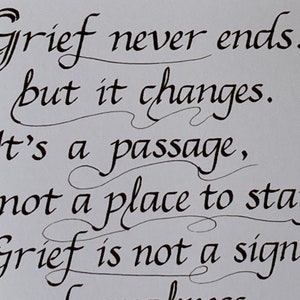 Grief never ends.
but it changes.
It's a passage,
not a place to sta
Grief is not a sign